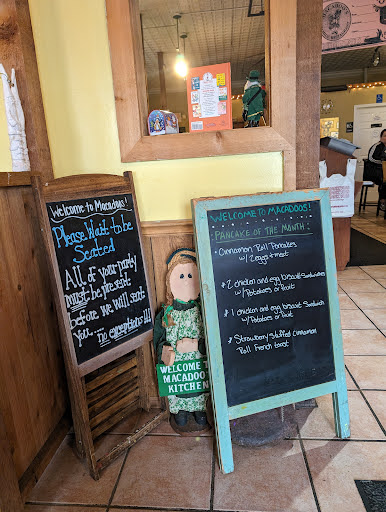 Welcome to Macadoos!
Please Wait to be
Seated
All of your party
must be present
before we will seat
you. no exceptions!!!
WELCOME TO
MACADOO'S
KITCHEN
WELCOME TO MACADOOS!
PANCAKE OF THE MONTH:
Cinnamon Roll Pancakes
w/ 2 eggs + meat
2 chicken and egg biscuit Sandwiches
w/ Potatoes or fruit
1 chicken and egg biscuit Sandwich
w/ Potatoes or fruit
Strawberry Stuffed Cinnamon
Roll French toast